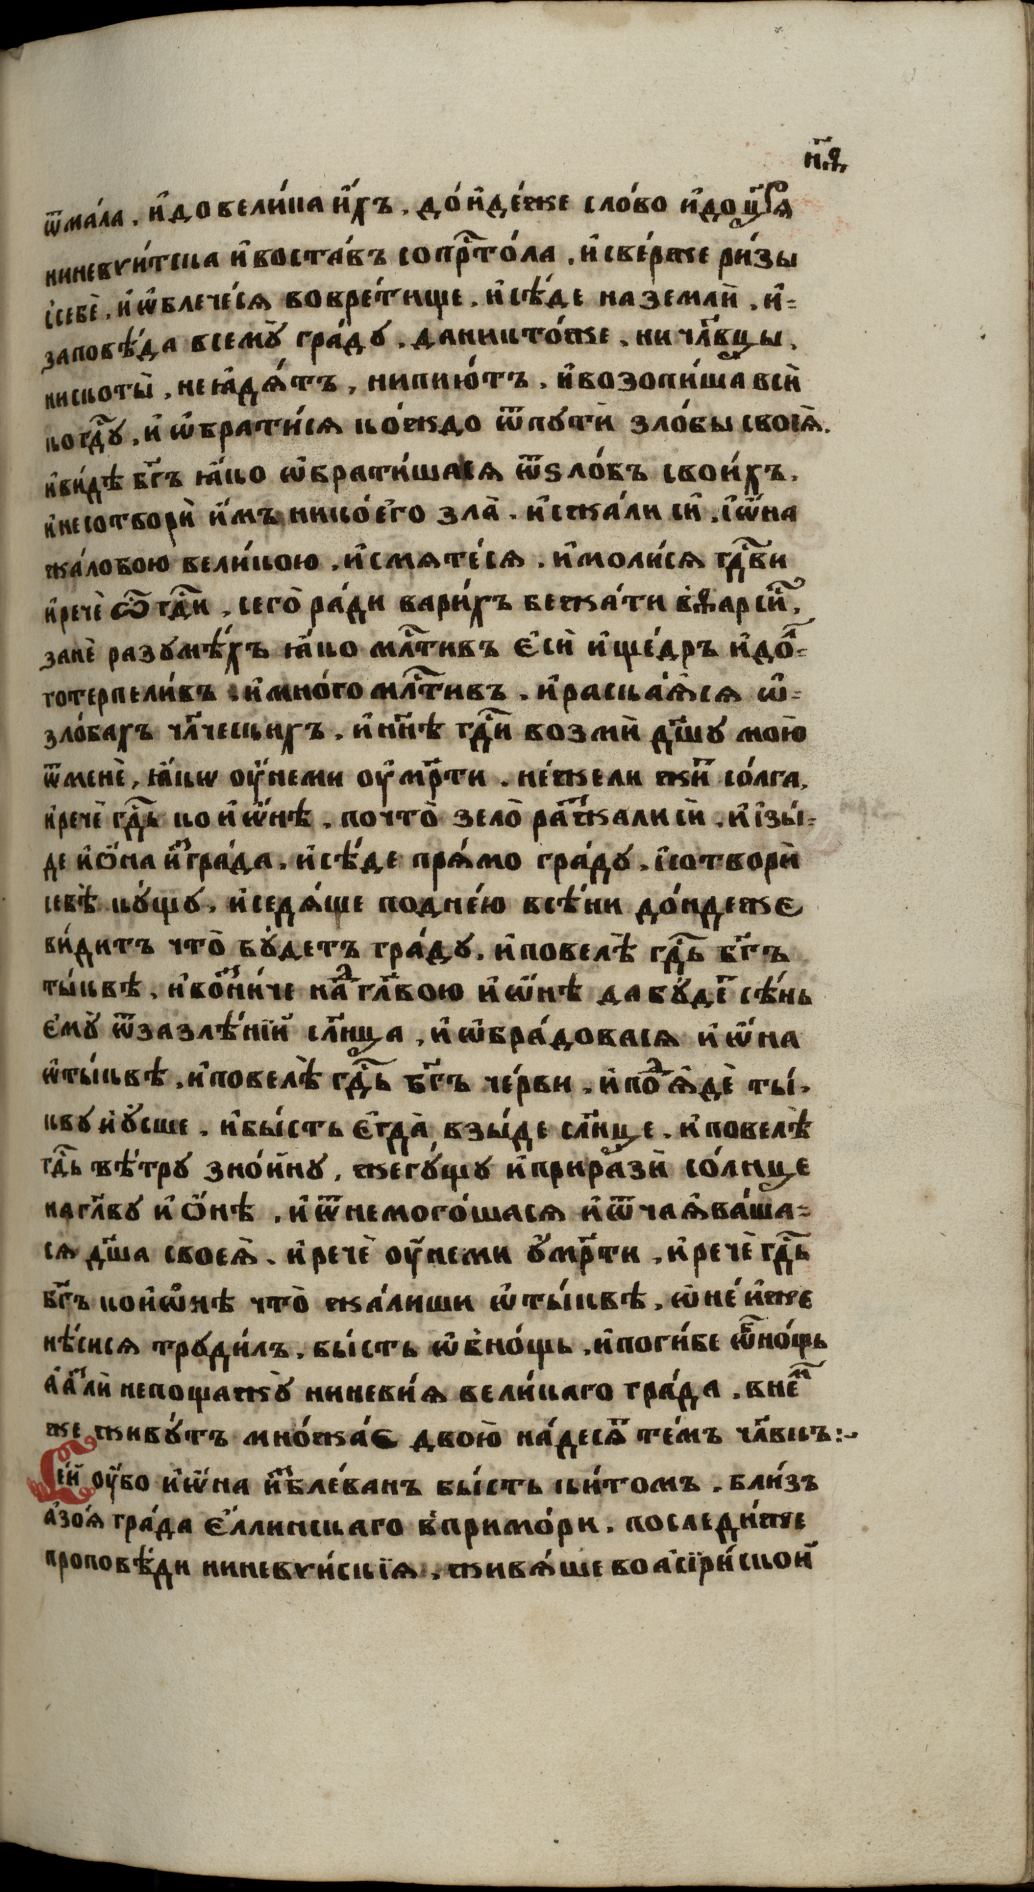 н҃я
ѿма́ла. и҆довели́ка и҆́хъ. до́и҆де́же сло́во и҆доцр҃я
ниневги́тска и҆воста́въ сопрⷭ҇то́ла. и҆све́рже ри́зы
ссебѐ. и҆ѡ҆блече́ся вовре́тище. и҆сѣ́де наземлѝ. и҆=
заповѣ́да всемꙋ̀ гра́дꙋ. даничто́же. ни чл҃вцы.
нискотѝ. неꙗ҆дѧ́тъ. нипию́тъ. и҆возопи́ша всѝ
когдⷭ҇ꙋ. и҆ѡ҆брати́ся ко́ждо ѿпꙋтѝ зло́бы своеѧ̀.
и҆ви́дѣ бг҃ъ ꙗ҆́ко ѡ҆брати́шася ѿѕло́въ свои́хъ.
и҆несотворѝ и҆́мъ нико́его зла̀. и҆сжа́ли си. і҆ѡ҆́на
жа́лобою вели́кою. и҆смяте́ся. и҆моли́ся гдⷭ҇ви
и҆речѐ ѽ гдⷭ҇и. сего̀ ра́ди вари́хъ бежа́ти в̾ѳарсі́й.
занѐ разꙋмѣ́хъ ꙗ҆́ко млⷭ҇тивъ є҆сѝ и҆ще́дръ и҆до́л=
готерпели́въ. и҆мно́го млⷭ҇тивъ. и҆раска́яйся ѡ҆=
зло́бахъ чл҃ческихъ. и҆нн҃ѣ гдⷭ҇и возмѝ дш҃ꙋ мою̀
ѿменѐ, ꙗ҆́кѡ оу҆́неми оу҆мрⷭ҇ти. не́жели жи́ти со́лга.
и҆речѐ гдⷭ҇ь ко и҆ѡ҆́нѣ. почто̀ зело̀ разжали сѝ. и҆ізы́=
де и҆ѻ҆́на и҆згра́да. и҆сѣ́де пря́мо гра́дꙋ. і҆сотворѝ
себѣ̀ кꙋ́щꙋ. и҆седя́ше поднею́ всѣ́ни до́ндеже
ви́дитъ что̀ бꙋ́детъ гра́дꙋ. и҆повелѣ̀ гдⷭ҇ь бг҃ъ
ты́квѣ. и҆возни́че надгл҃вою и҆ѡ҆́нѣ дабꙋ́детъ сѣ́нь
є҆мꙋ̀ ѿзазлѣ́нїй сл҃нца. и҆ѡ҆бра́довася и҆ѡ҆́на
ѡ҆ты́квѣ. и҆повелѣ̀ гдⷭ҇ь бг҃ъ че́рви. и҆подъядѐ ты́=
квꙋ и҆ꙋ҆́сше. и҆бы́сть є҆гда̀ взы́де сл҃нце. и҆повелѣ̀
гдⷭ҇ь вѣ́трꙋ зно́йнꙋ, жегꙋ́щꙋ и҆приразѝ со́лнце
нагл҃вꙋ и҆ѻ҆́нѣ. и҆ѿнемого́шася и҆ѿчаява́ша=
ся дш҃а своеѧ̀. и҆речѐ оу҆́неми ꙋ҆мрⷭ҇ти. и҆речѐ гдⷭ҇ь
бг҃ъ кои҆ѡ҆́нѣ что̀ жа́лиши ѡ҆ты́квѣ. ѡ҆не́йже
нѣ́сися трꙋди́лъ. бы́сть ѡ҆в̾но́щь. и҆поги́бе ѡ҆б̾но́щь
а҆азли непощажꙋ̀ ниневи́я вели́каго гра́да. в̾не́м
же живꙋ́тъ мно́жае двою̀ на́десят те́мъ чл҃вкъ:~
Се́й оу҆́бо и҆ѡ҆́на и҆зблева́нъ бы́сть ки́томъ. бли́зъ
а҆зо́я гра́да є҆́ллинскаго в̾примо́ри. последи́же
проповѣ́ди ниневги́скїя. живя́ше воасїри́ской